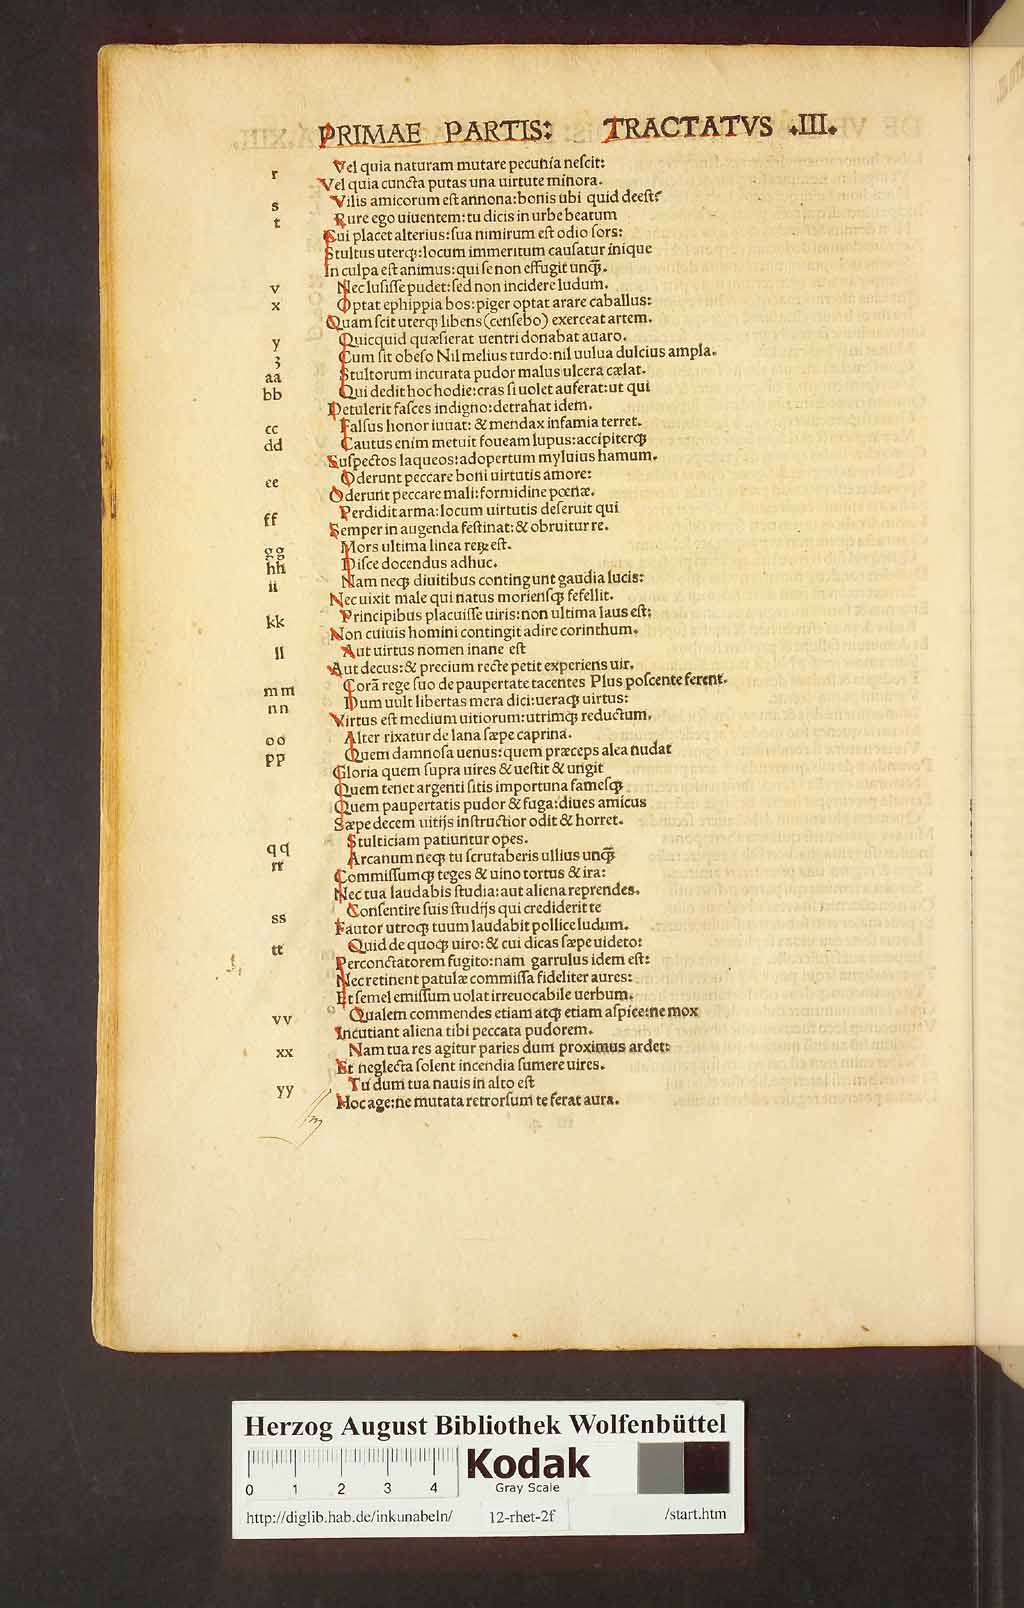 PRIMAE PARTIS: TRACTATVS .III.
Vel quia naturam mutare pecunia neſcit:
r
Vel quia cuncta putas una uirtute minora.
s Vilis amicorum eſt annona: bonis ubi quid deeſt?
t Rure ego uiuentem: tu dicis in urbe beatum
Cui placet alterius: ſua nimirum eſt odio ſors:
Stultus uterq̃: locum immeritum cauſatur inique
In culpa eſt animus: qui ſe non effugit unq̃.
v Nec luſiſſe pudet: ſed non incidere ludum.
x Optat ephippia bos: piger optat arare caballus:
Quam ſcit uterq̃ libens (cenſebo) exerceat artem.
y Quicquid quæſierat uentri donabat auaro.
ʒ Cum ſit obeſo Nil melius turdo: nil uulua dulcius ampla.
aa Stultorum incurata pudor malus ulcera cælat.
bb Qui dedit hoc hodie: cras ſi uolet auferat: ut qui
Detulerit faſces indigno: detrahat idem.
cc Falſus honor iuuat: & mendax infamia terret.
dd Cautus enim metuit foueam lupus: accipiterq̃
Suſpectos laqueos: adopertum myluius hamum.
ee Oderunt peccare boni uirtutis amore:
Oderunt peccare mali: formidine pœnæ.
ff Perdidit arma: locum uirtutis deſeruit qui
Semper in augenda feſtinat: & obruitur re.
gg Mors ultima linea reꝝ eſt.
hh Diſce docendus adhuc.
ii Nam neq̃ diuitibus contingunt gaudia lucis:
Nec uixit male qui natus morienſq̃ fefellit.
kk Principibus placuiſſe uiris: non ultima laus eſt:
Non cuiuis homini contingit adire corinthum.
ll Aut uirtus nomen inane eſt
Aut decus: & precium recte petit experiens uir.
mm Corã rege ſuo de paupertate tacentes Plus poſcente ferent.
nn Dum uult libertas mera dici: ueraq̃ uirtus:
Virtus eſt medium uitiorum: utrimq̃ reductum.
oo Alter rixatur de lana ſæpe caprina.
pp Quem damnoſa uenus: quem præceps alea nudat
Gloria quem ſupra uires & ueſtit & ungit
Quem tenet argenti ſitis importuna fameſq̃
Quem paupertatis pudor & fuga: diues amicus
Sæpe decem uitijs inſtructior odit & horret.
qq Stulticiam patiuntur opes.
rr Arcanum neq̃ tu ſcrutaberis ullius unq̃
Commiſſumq̃ teges & uino tortus & ira:
Nec tua laudabis ſtudia: aut aliena reprendes.
ss Conſentire ſuis ſtudijs qui crediderit te
Fautor utroq̃ tuum laudabit pollice ludum.
tt Quid de quoq̃ uiro: & cui dicas ſæpe uideto:
Perconctatorem fugito: nam garrulus idem eſt:
Nec retinent patulæ commiſſa fideliter aures:
Et ſemel emiſſum uolat irreuocabile uerbum.
vv Qualem commendes etiam atq̃ etiam aſpice: ne mox
Incutiant aliena tibi peccata pudorem.
xx Nam tua res agitur paries dum proximus ardet:
Et neglecta ſolent incendia ſumere uires.
yy Tu dum tua nauis in alto eſt
Hoc age: ne mutata retrorſum te ferat aura.
Herzog August Bibliothek Wolfenbüttel
0 1 2 3 4
Kodak
Gray Scale
http://diglib.hab.de/inkunabeln/ 12-rhet-2f /start.htm